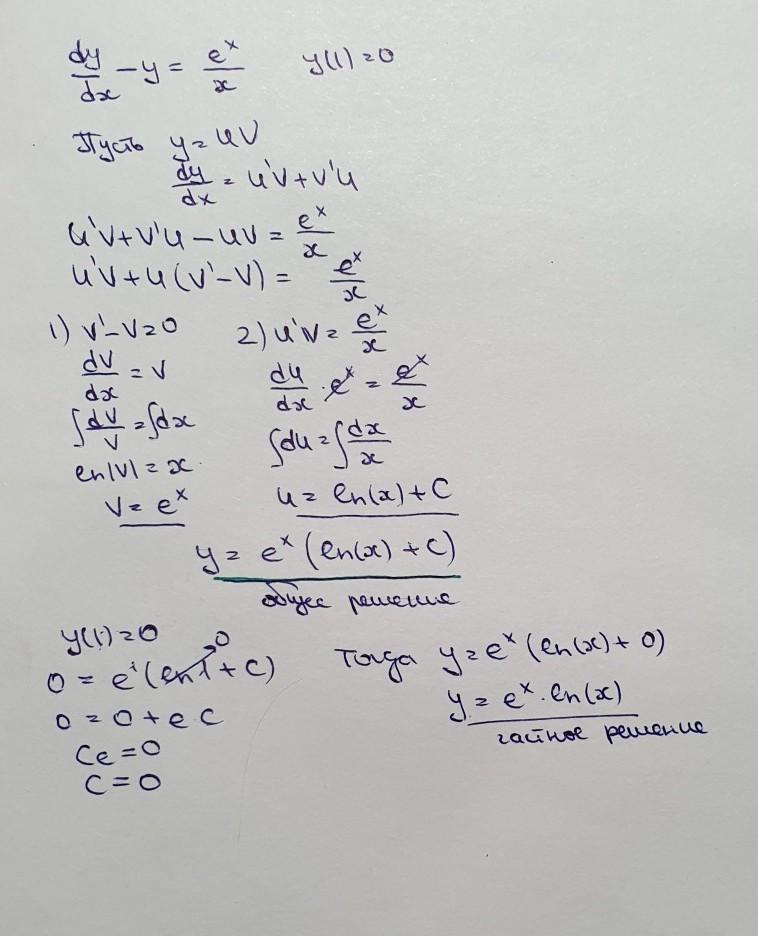 dy/dx - y = e^x/x y(1)=0
Пусть y = uV
dy/dx = u'V+V'u
u'V+V'u-uV = e^x/x
u'V+u(V'-V) = e^x/x
1) V'-V=0
dV/dx = V
∫dV/V = ∫dx
ln|V| = x
V = e^x
2) u'V = e^x/x
du/dx · e^x = e^x/x
∫du = ∫dx/x
u = ln(x)+C
y = e^x (ln(x) + C)
общее решение
y(1)=0
0 = e^1(ln1 + C) 0
0 = 0 + eC
Ce = 0
C = 0
Тогда y = e^x (ln(x) + 0)
y = e^x · ln(x)
частное решение